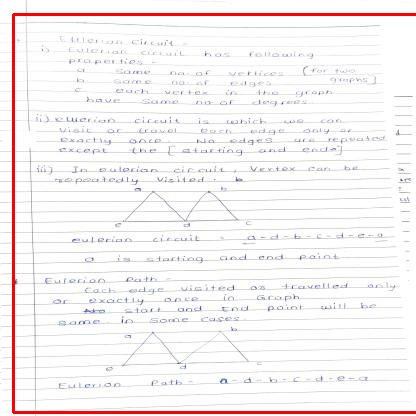 Eulerian Circuit -
i) Eulerian circuit has following
properties -
a same no. of vertices [for two
b same no. of edges graphs]
c each vertex in the graph
have same no. of degrees.
ii) eulerian circuit is which we can
visit or travel each edge only or
exactly once. No edges are repeated
except the [starting and ends]
iii) In eulerian circuit, Vertex can be
repeatedly visited.
a b
e d c
eulerian circuit = a-d-b-c-d-e-a
a is starting and end point
Eulerian Path -
Each edge visited or travelled only
or exactly once in Graph
start and End point will be
same in some cases.
a b
e d c
Eulerian Path - a-d-b-c-d-e-a